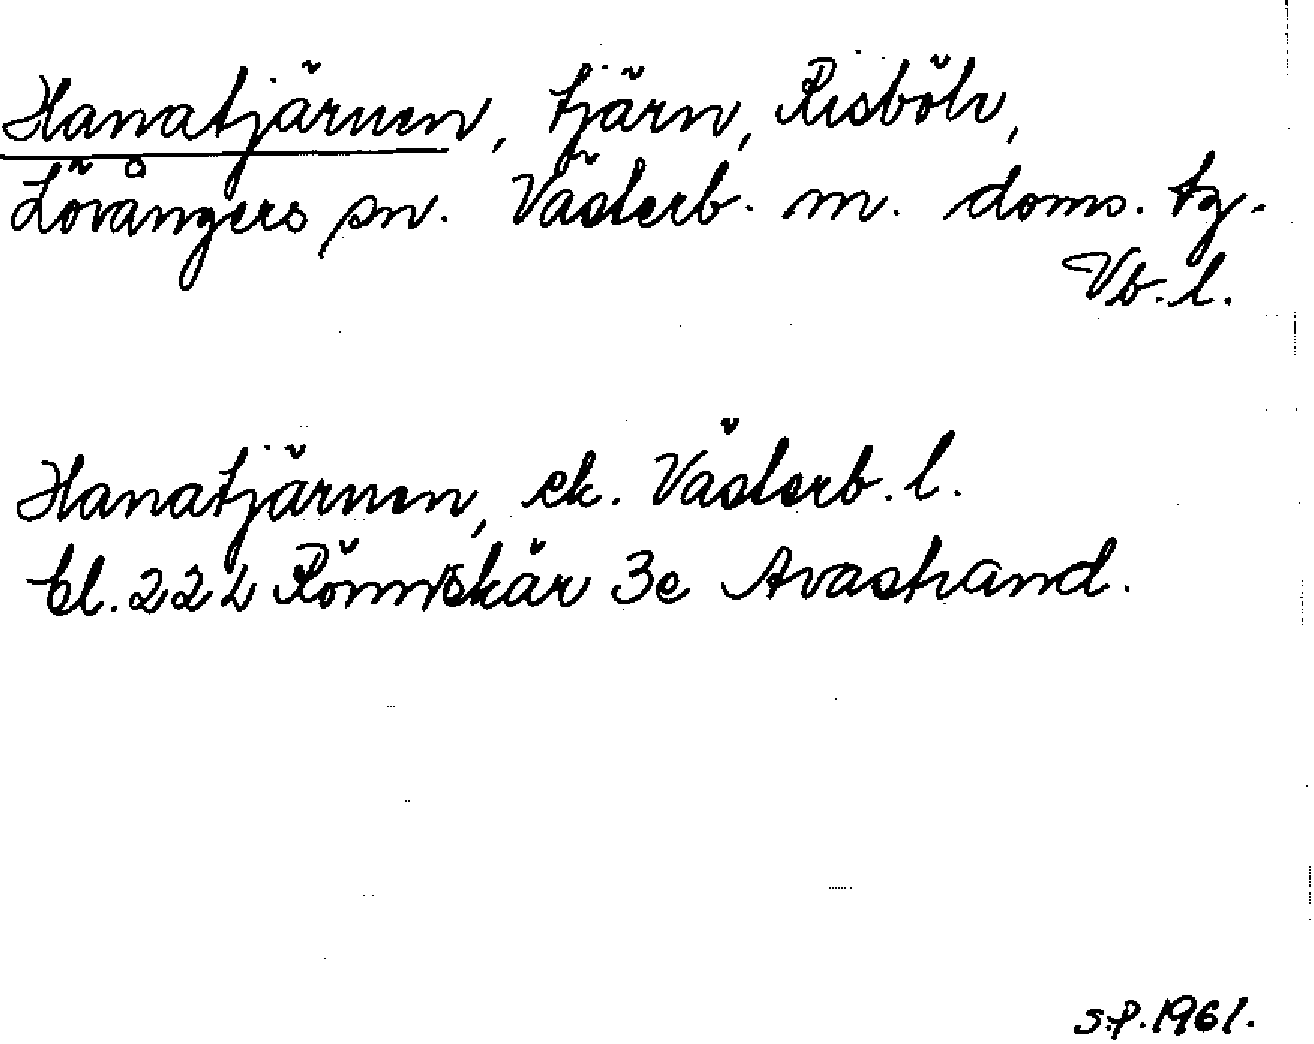 Hanatjärnen, tjärn, Risböle,
Lövångers sn. Västerb. m. doms. tg.
Vb. l.
Hanatjärnen, ek. Västerb. l.
bl. 22 L Rönnskär 3e Avastrand.
S.P. 1961.